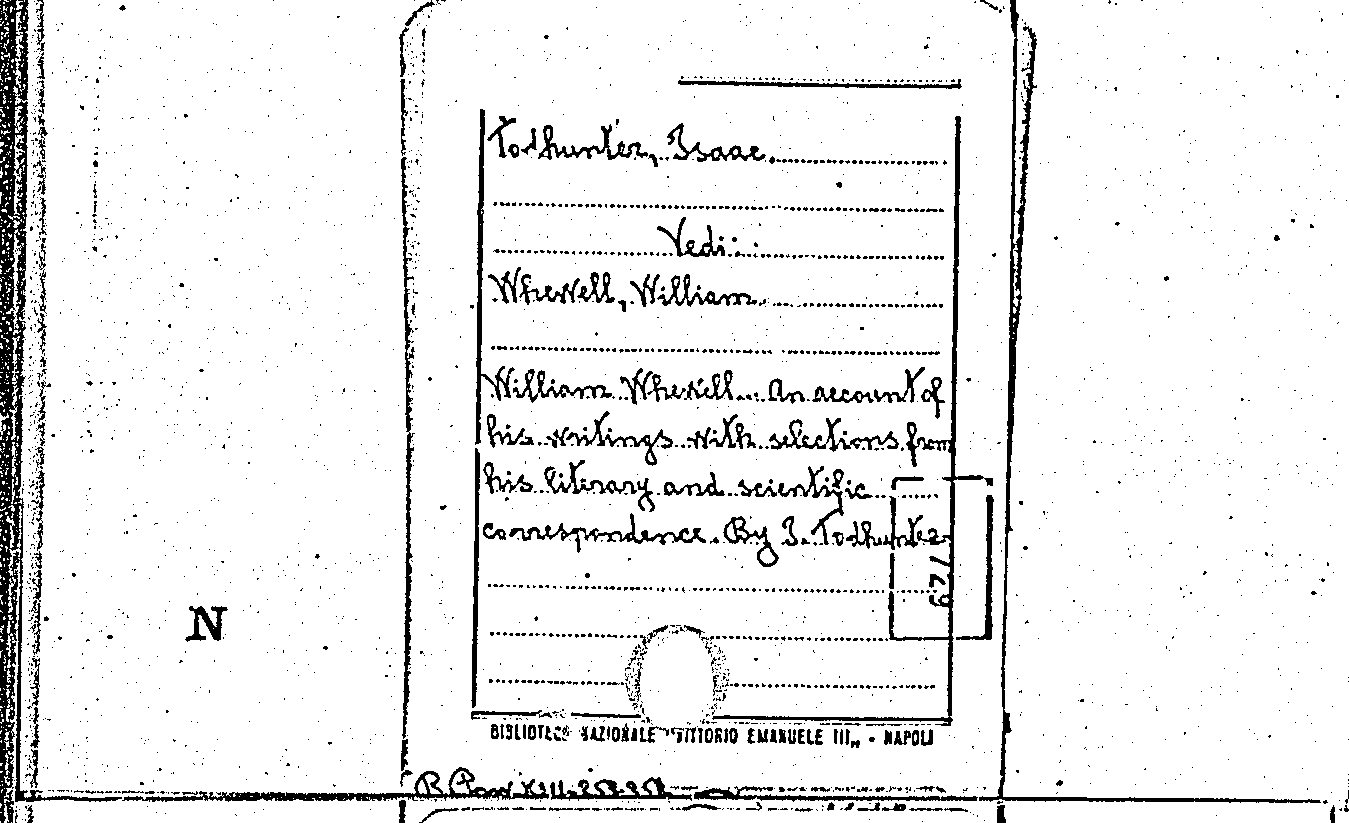 Todhunter, Isaac.
Vedi:
Whewell, William.
William Whewell. An account of
his writings with selections from
his literary and scientific
correspondence. By I. Todhunter.
729
N
BIBLIOTECA NAZIONALE "VITTORIO EMANUELE III„ - NAPOLI